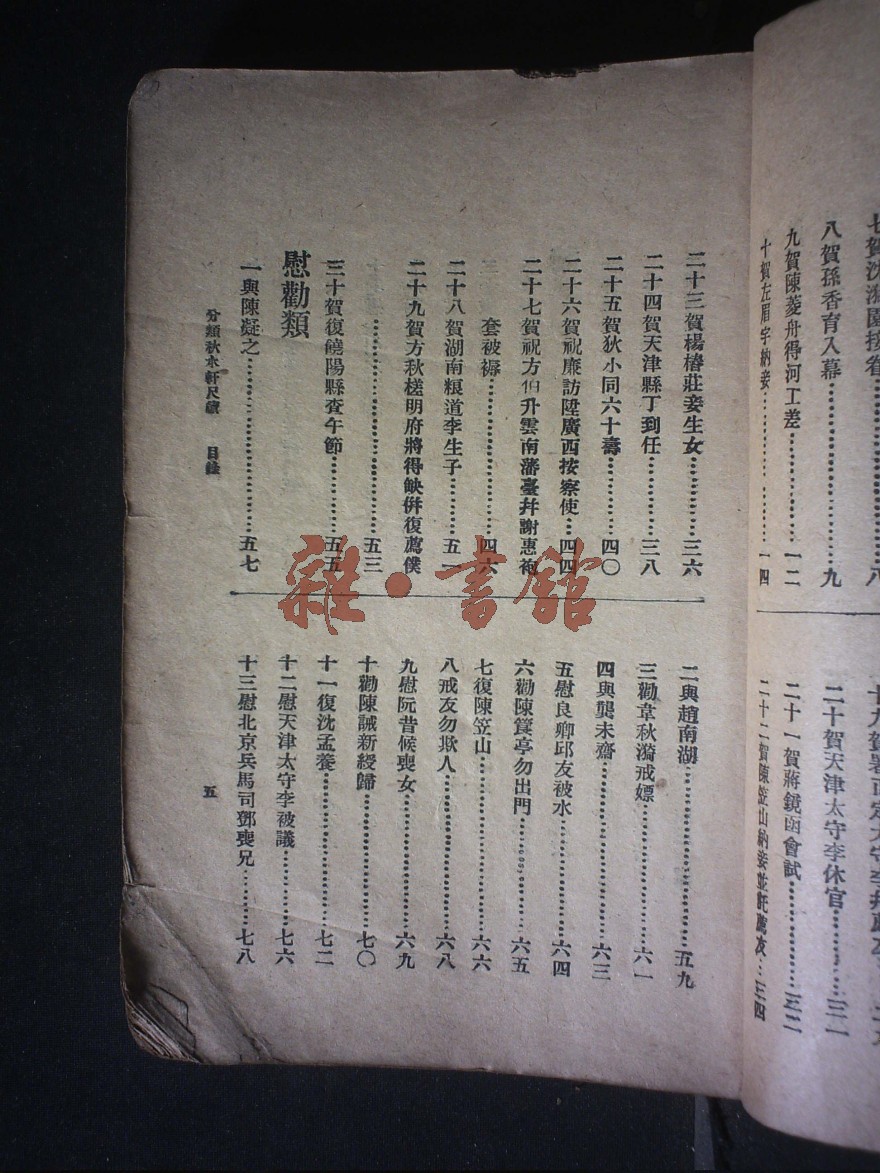 八賀孫香育入幕……九
九賀陳菱舟得河工差……一二
十賀左眉宇納妾……一四
二十賀天津太守李休官……三一
二十一賀蔣鏡函會試……三二
二十二賀陳笠山納妾並託薦友……三四
二十三賀楊椿莊妾生女……三六
二十四賀天津縣丁到任……三八
二十五賀狄小同六十壽……四〇
二十六賀祝廉訪陞廣西按察使…四四
二十七賀祝方伯升雲南藩臺幷謝惠袍
套被褥……四六
二十八賀湖南糧道李生子……五一
二十九賀方秋槎明府將得缺倂復薦僕
……五三
三十賀復饒陽縣查午節……五五
慰勸類
一與陳凝之……五七
二與趙南湖……五九
三勸韋秋漪戒嫖……六一
四與龔未齋……六三
五慰良卿邱友被水……六四
六勸陳篔亭勿出門……六五
七復陳笠山……六六
八戒友勿欺人……六八
九慰阮昔候喪女……六九
十勸陳誠新綬歸……七〇
十一復沈孟養……七二
十二慰天津太守李被議……七六
十三慰北京兵馬司鄧喪兄……七八
分類秋水軒尺牘 目錄
五
雜·書館